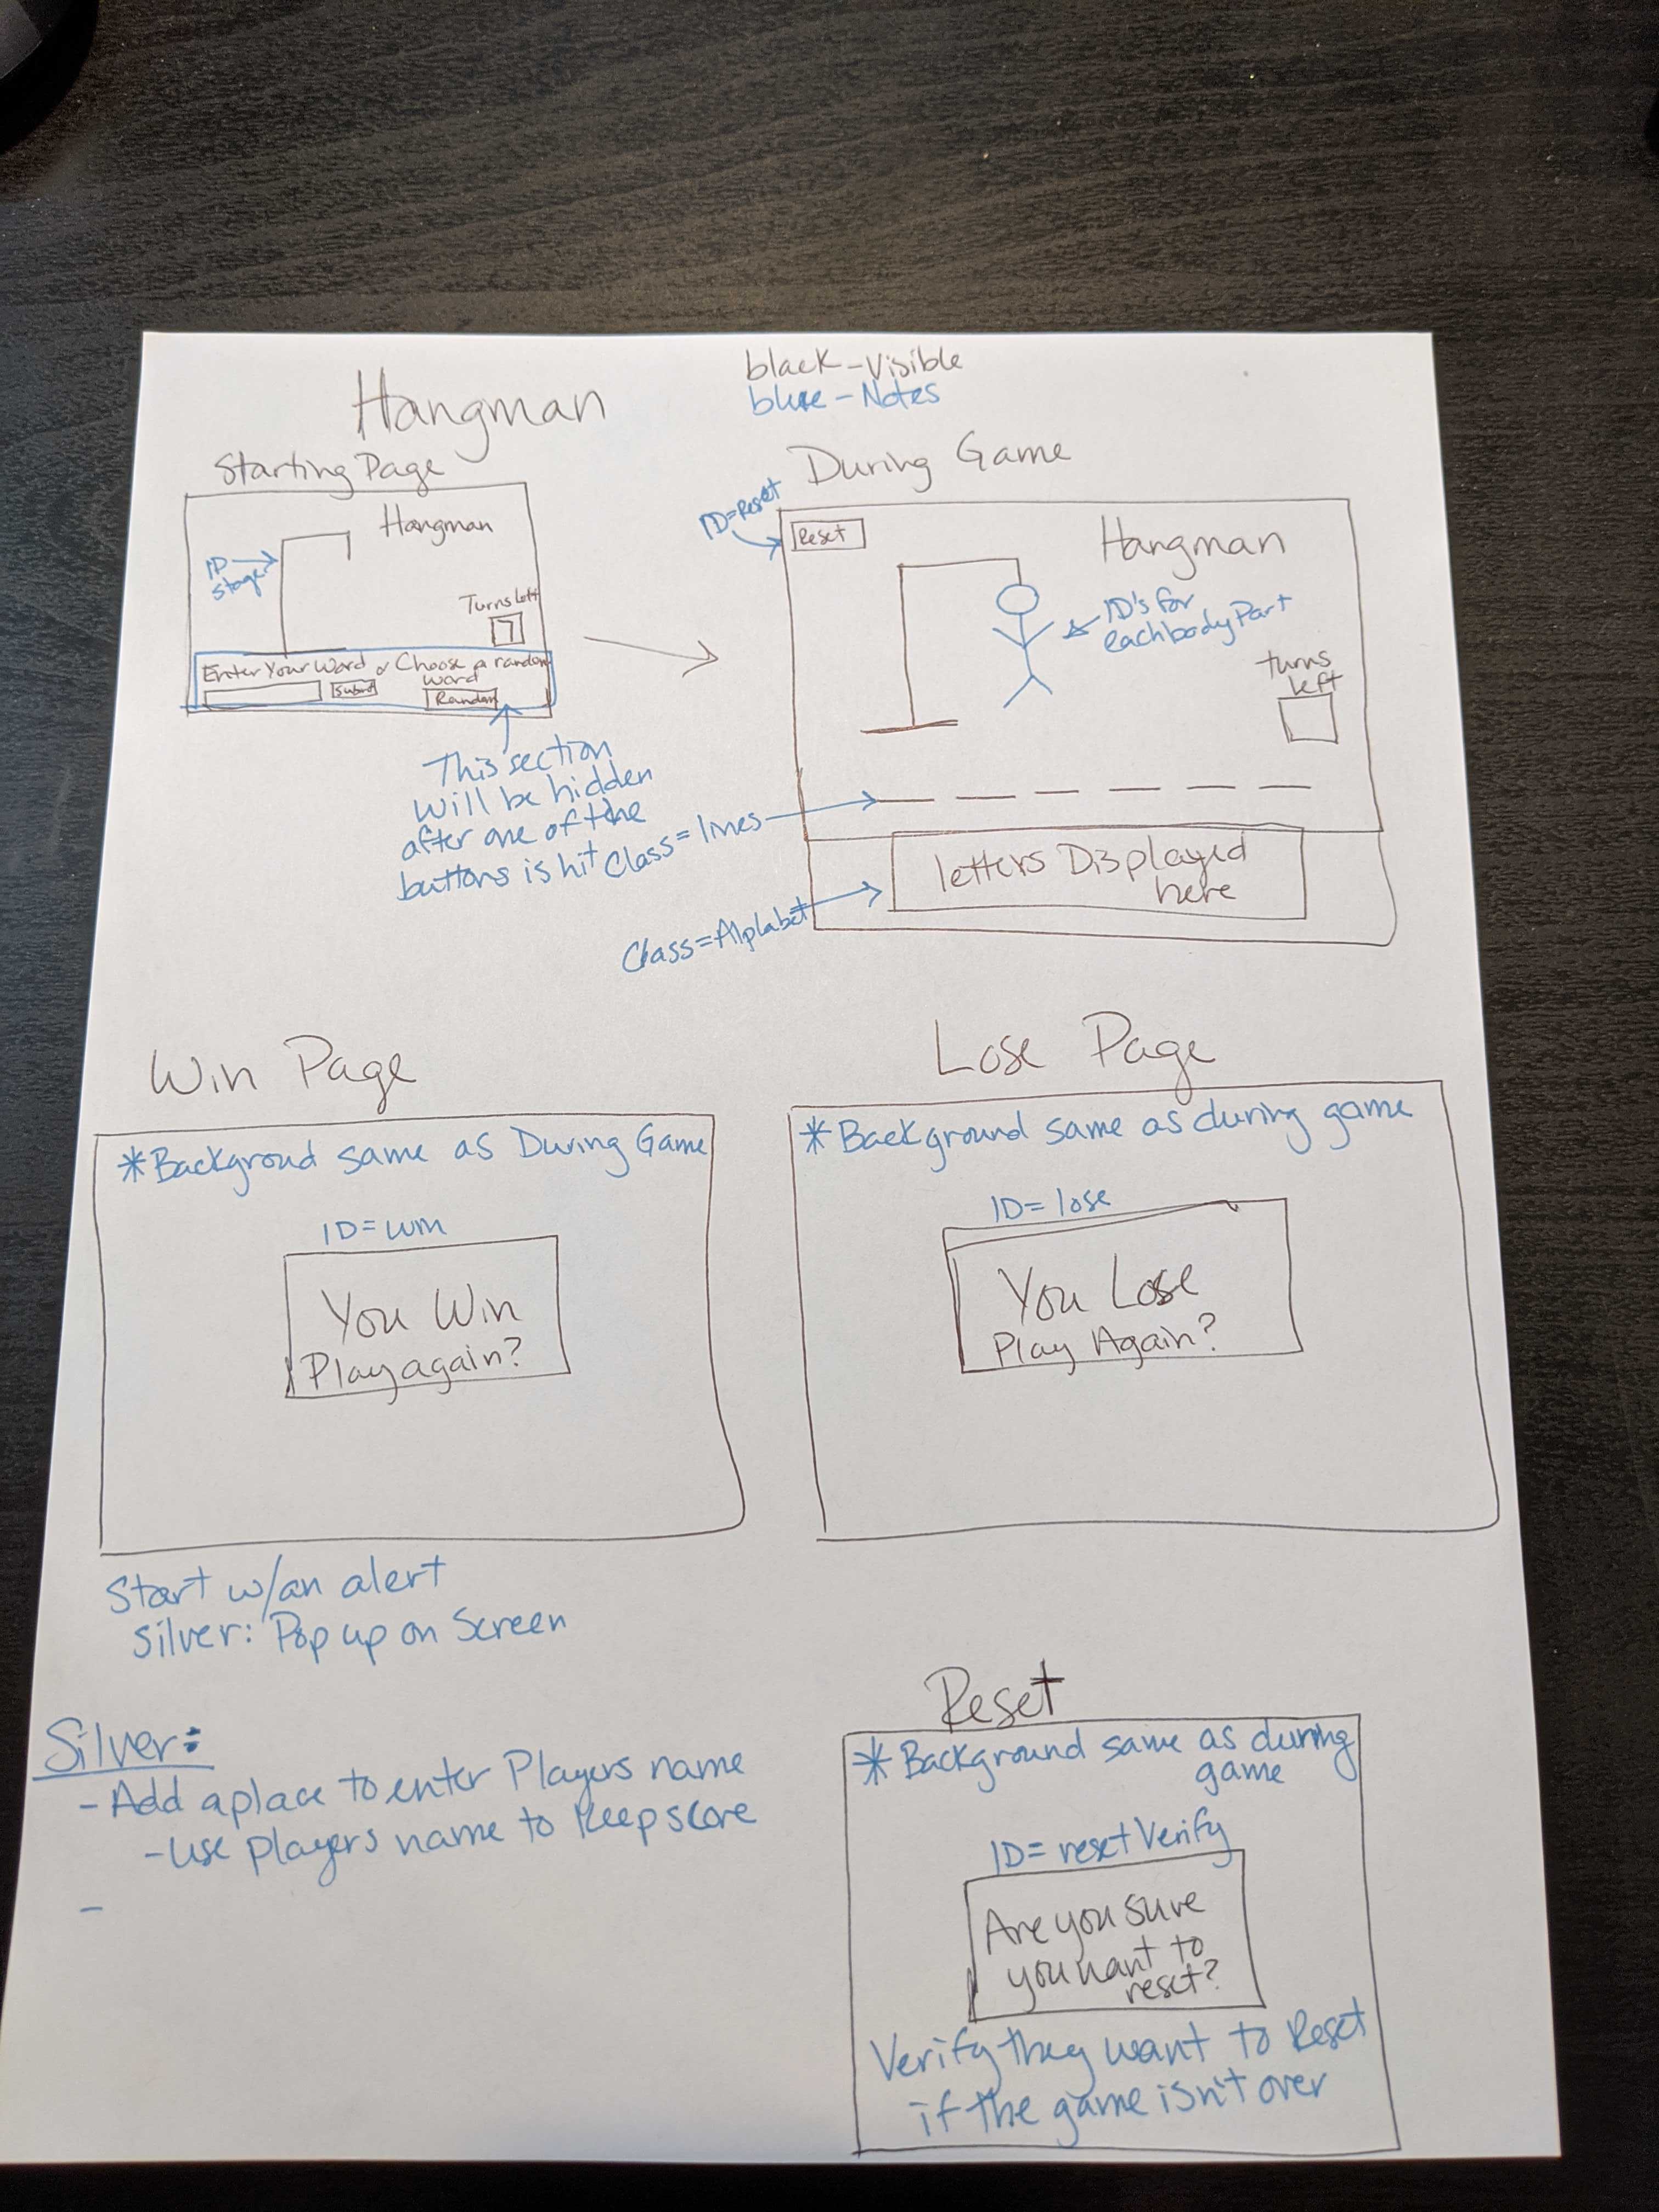 Hangman
black - Visible
blue - Notes
Starting Page
Hangman
ID
stage
Turns Left
7
Enter Your Word or Choose a random
word
Submit
Random
This section
will be hidden
after one of the
buttons is hit
During Game
ID=Reset
Reset
Hangman
ID's for
each body Part
turns
left
Class = lines
letters Displayed
here
Class=Alplabet
Win Page
*Backgroud same as During Game
ID= win
You Win
Play again?
Lose Page
*Background same as during game
ID= lose
You Lose
Play Again?
Start w/an alert
silver: Pop up on Screen
Silver:
- Add a place to enter Players name
- use players name to keep score
-
Reset
*Background same as during
game
ID= reset Verify
Are you sure
you want to
reset?
Verify they want to Reset
if the game isn't over